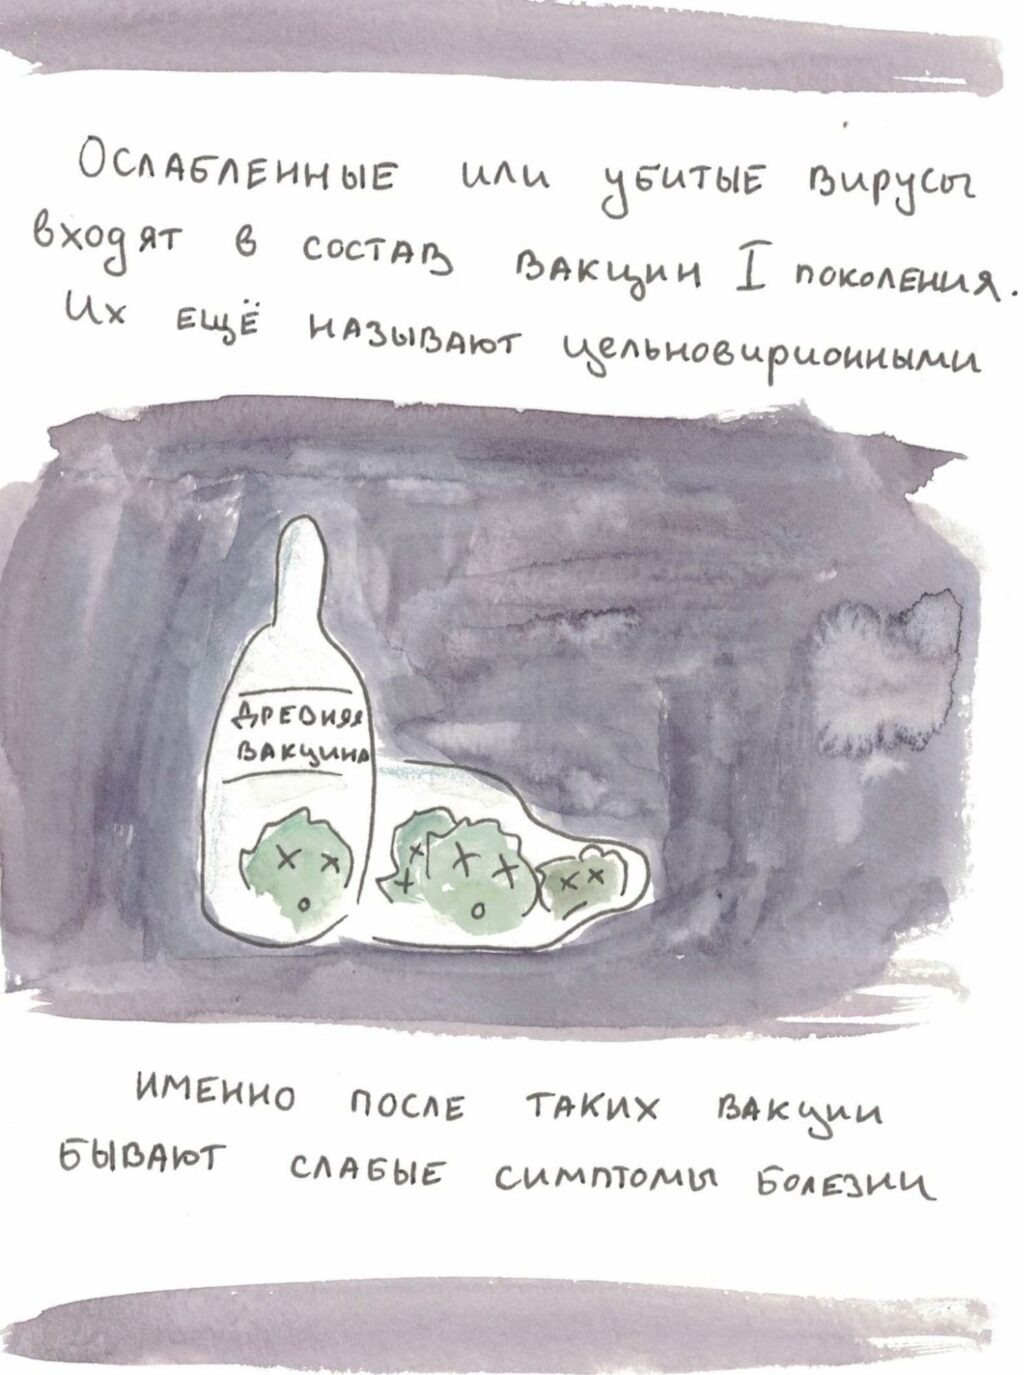 Ослабленные или убитые вирусы
входят в состав вакцин I поколения.
Их ещё называют цельновирионными
ДРЕВНЯЯ
ВАКЦИНА
именно после таких вакцин
бывают слабые симптомы болезни